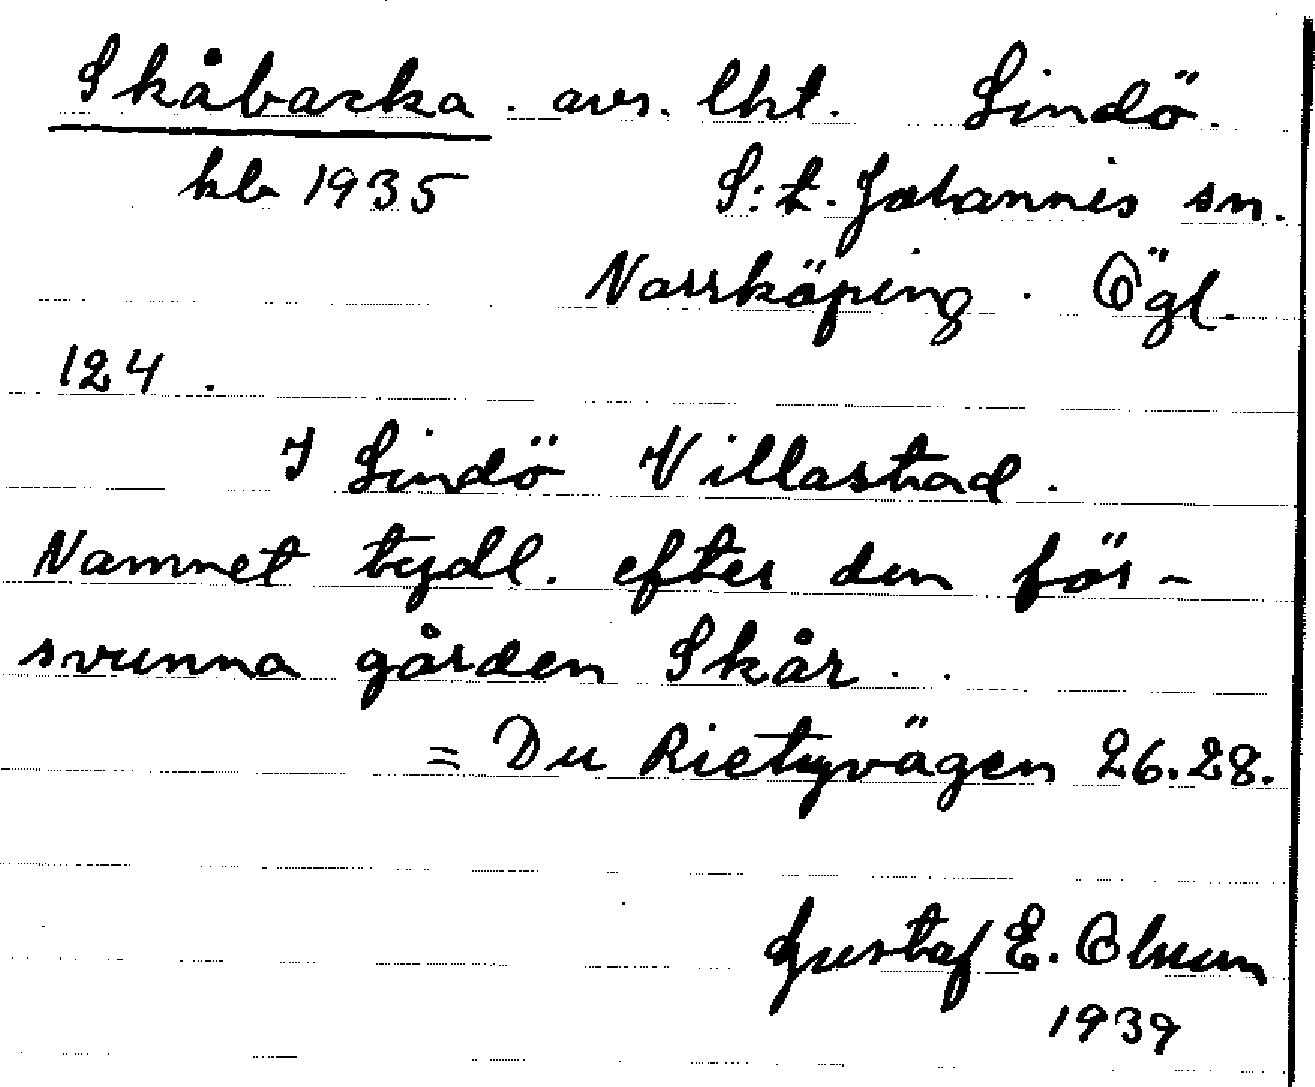 Skåbacka . avs. lht. Lindö.
kb 1935 S:t. Johannis sn.
Norrköping . Ögl.
124 .
I Lindö Villastad .
Namnet tydl. efter den för-
svunna gården Skår . .
= Du Rietzvägen 26.28.
Gustaf E. Olsson
1939